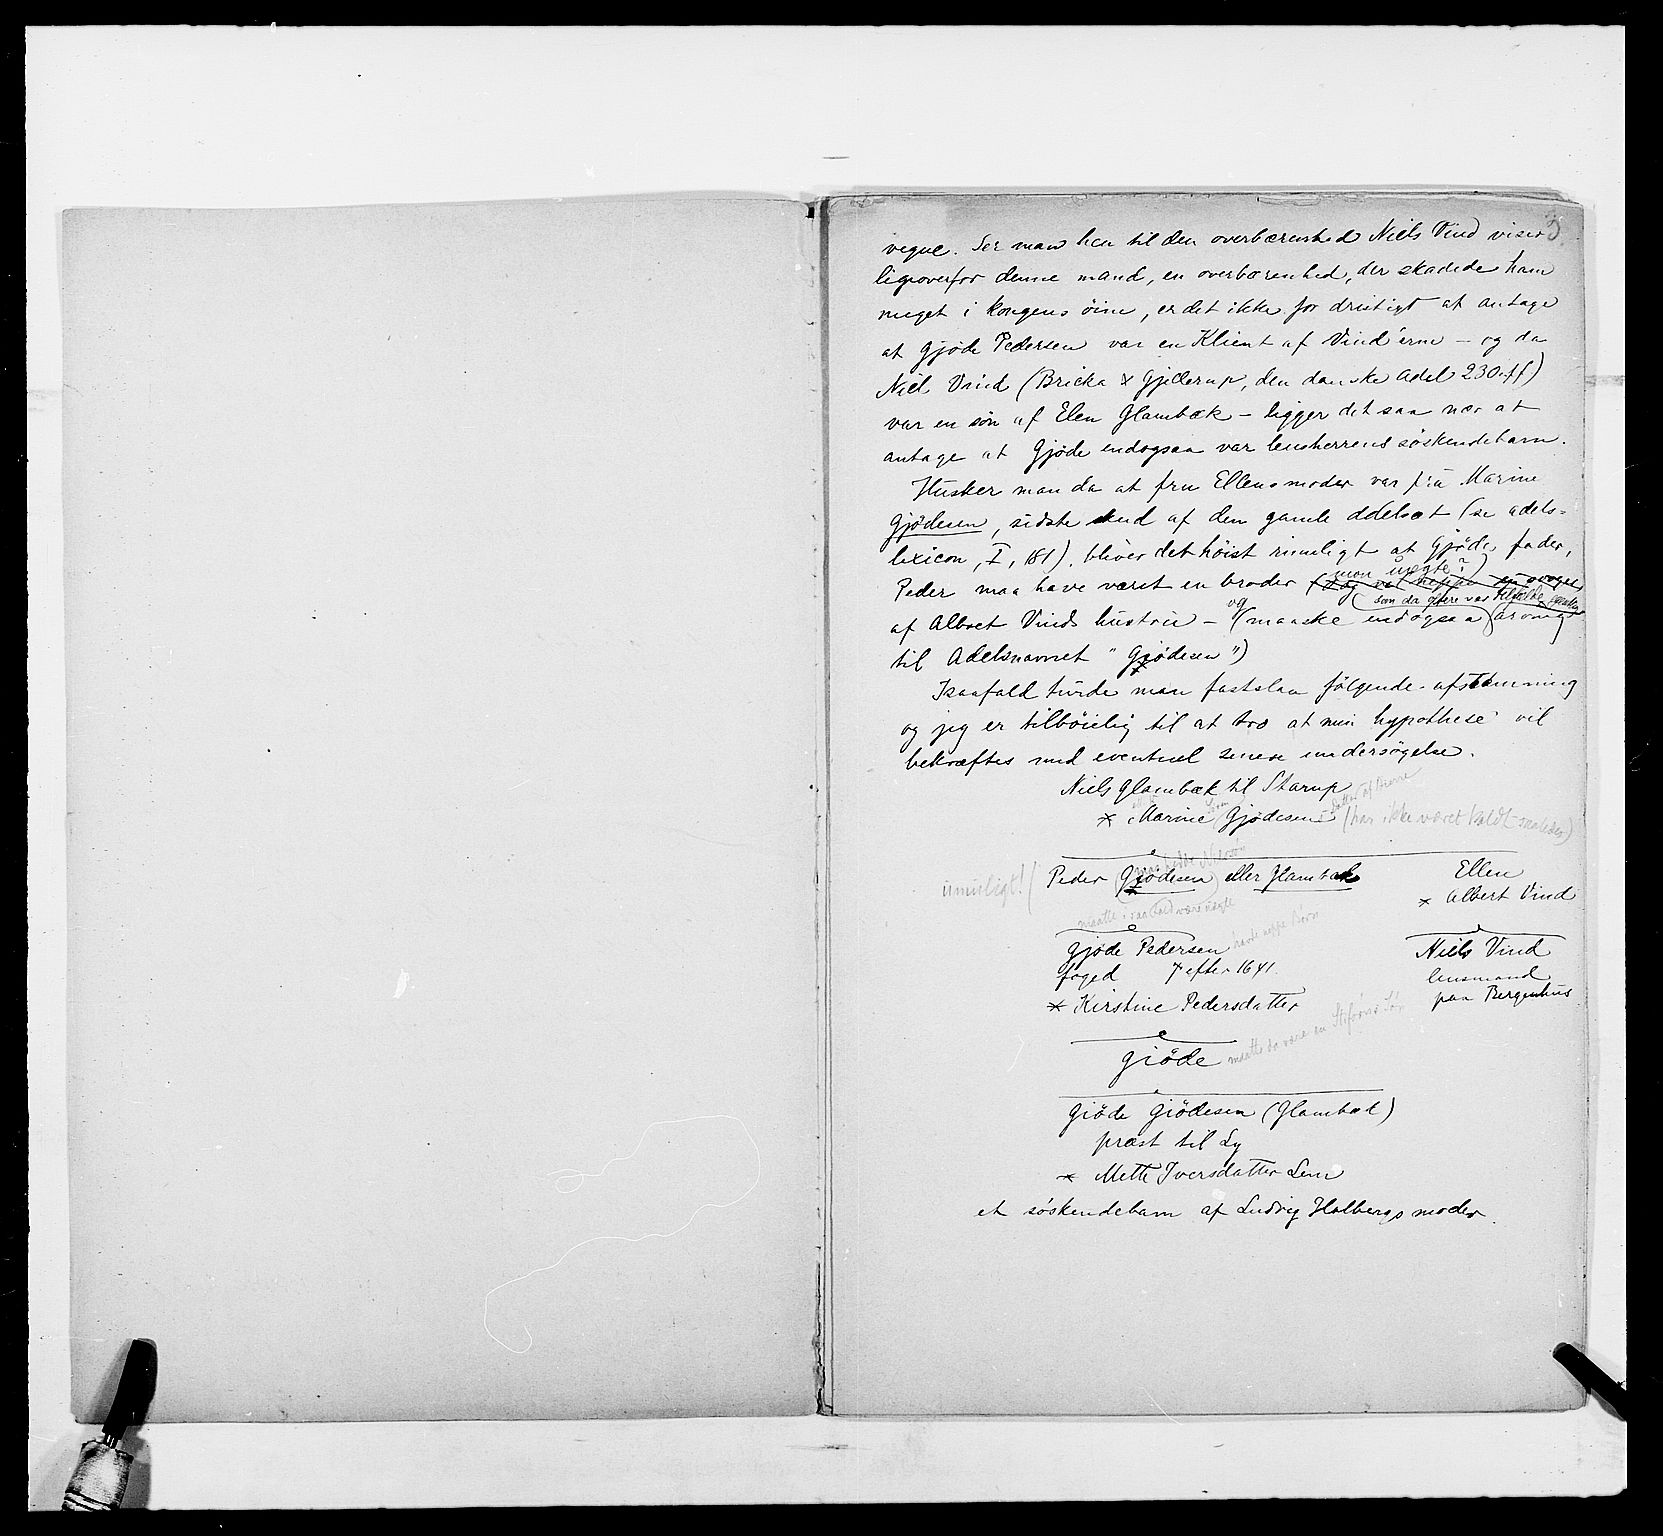 3
vegne. Ser man hen til den overbærenhed Niels Vind viser
ligeoverfor denne mand, en overbærenhed, der skadede ham
meget i kongens öine, er det ikke for dristigt at antage
at Gjöde Pedersen var en Klient af Vind'erne – og da
Niels Vind (Bricka & Gjellerup, den danske Adel 230.ff)
var en sön af Elen Glambæk – ligger det saa nær at
antage at Gjöde endogsaa var lensherrens söskendebarn.
Husker man da at fru Ellens moder var fru Marine
Gjödesen, sidste skud af den gamle adelsæt (se adels=
lexicon, I, 181). bliver det höist rimeligt at Gjödes fader,
mon uægte?)
Peder maa have været en broder
(som da ofere var tilfælde
af Albret Vinds hustru – og (maaske endogsaa arving
til Adelsnavnet "Gjödesen")
Isaafald turde man fastslaa fölgende afstamning
og jeg er tilböielig til at tro at min hypothese vil
bekræftes med eventuel senere undersögelse.
Niels Glambæk til Starup
datter af
* Marine Gjödesen (har ikke været kaldt saaledes)
maa hedde Nielsön
umuligt! ( Peder (Gjödesen) eller Glambæk
Ellen
* Albert Vind
maatte i saa fald være uægte
Gjöde Pedersen havde neppe Börn
foged † efter 1641.
* Kirstine Pedersdatter
Niels Vind
lensmand
paa Bergenhus
Giöde maatte da være en Stifsöns Sön
Giöde Giödesen (Glambæk)
præst til Ly
* Mette Iversdatter Lem
et söskendebarn af Ludvig Holbergs moder.